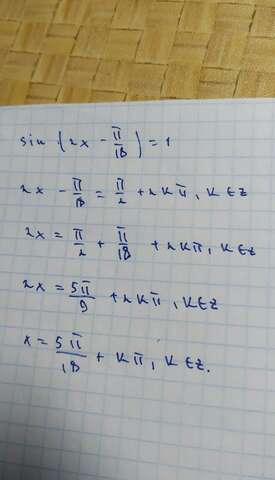 sin (2x - π/18) = 1
2x - π/18 = π/2 + 2kπ, k ∈ Z
2x = π/2 + π/18 + 2kπ, k ∈ Z
2x = 5π/9 + 2kπ, k ∈ Z
x = 5π/18 + kπ, k ∈ Z.